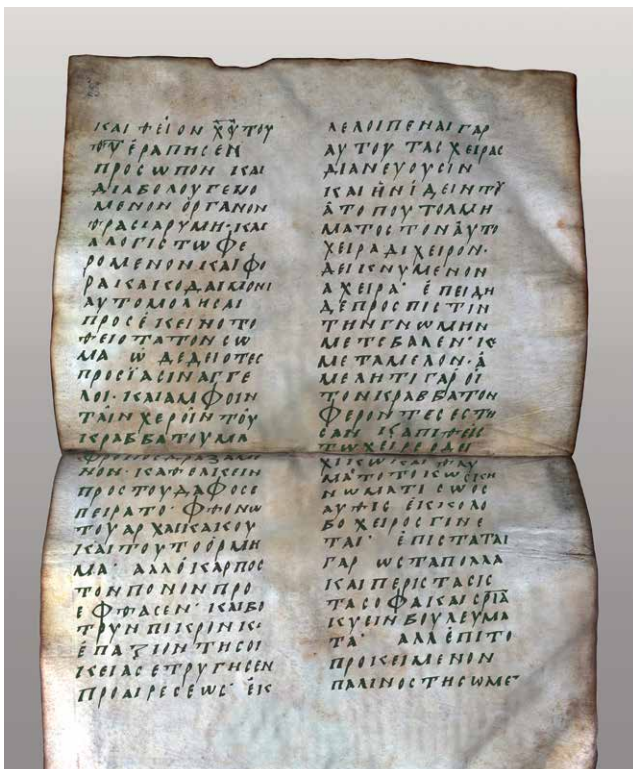 ΚΑΙ ΘΕΙΟΝ
ΕΡΑΠΗCΕΝ
ΠΡΟCΩΠΟΝ ΚΑΙ
ΔΙΑΒΟΛΟΥ ΓΕΝΟ
ΜΕΝΟΝ ΟΡΓΑΝΟΝ
ΘΡΑCΕΙΑ ΡΥΜΗ· ΚΑΙ
ΑΛΟΓΙCΤΩ ΦΕ
ΡΟΜΕΝΟΝ ΚΑΙ
ΚΑΚΟΔΑΙΜΟΝΙ
ΑΥΤΟΜΟΛΗCΑΙ
ΠΡΟC ἘΚΕΙΝΟ ΤΟ
ΘΕΙΟΤΑΤΟΝ CΩ
ΜΑ Ὠ ΔΕΔΕΙΟΤΕC
ΠΡΟCΪΑCΙΝ ΑΓΓΕ
ΛΟΙ· ΚΑΙ ΑΜΦΟΙΝ
ΤΑΙΝ ΧΕΡΟΙΝ ΤΟΥ
ΚΡΑΒΒΑΤΟΥ
ΝΟΝ· ΚΑΘΕΛΚΕΙΝ
ΠΡΟC ΤΟΥΔΑΦΟC Ε
ΠΕΙΡΑΤΟ· ΦΘΟΝΩ
ΤΟΥ ΑΡΧΑΙΚΑΚΟΥ
ΚΑΙ ΤΟΥΤΟ ὉΡΜΗ
ΜΑ· ΑΛΛ Ὁ ΚΑΡΠΟC
ΤΟΝ ΠΟΝΟΝ ΠΡΟ
ΕΦΘΑCΕΝ· ΚΑΙ ΒΟ
ΤΡΥΝ ΠΙΚΡΙΝ Κ
ἘΠΑΞΙΟΝ ΤΗC ΟΙ
ΚΕΙΑC ΕΤΡΥΓΗCΕΝ
ΠΡΟΑΙΡΕCΕΩC· ἘΚ
ΛΕΛΟΙΠΕΝΑΙ ΓΑΡ
ΑΥΤΟΥ ΤΑC ΧΕΙΡΑC
ΔΙΑΝΕΥΟΥCΙΝ
ΚΑΙ ἨΝ ΙΔΕΙΝ ΤΥ
ἈΤΟΠΟΥ ΤΟΛΜΗ
ΜΑΤΟC ΤΟΝ ΑΥΤΟ
ΧΕΙΡΑ ΔΙ ΧΕΙΡΟΝ·
ΔΕΙΚΝΥΜΕΝΟΝ
ΑΧΕΙΡΑ· ἘΠΕΙΔΗ
ΔΕ ΠΡΟC ΠΙCΤΙΝ
ΤΗΝ ΓΝΩΜΗΝ
ΜΕΤΕΒΑΛΕΝ· Κ
ΜΕΤΑΜΕΛΟΝ· Ἀ
ΜΕΛΗΤΙ ΓΑΡ ΟΙ
ΤΟΝ ΚΡΑΒΒΑΤΟΝ
ΦΕΡΟΝΤΕC ΕCΤΗ
CΑΝ
ΤΩ ΧΕΙΡΕ
ΝΩΜΑΤΙ CΩΟC
ΑΥΘΙC ἘΚ ΚΟΛΟ
ΒΟΧΕΙΡΟC ΓΙΝΕ
ΤΑΙ· ἘΠΙCΤΑΤΑΙ
ΓΑΡ ΩC ΤΑ ΠΟΛΛΑ
ΚΑΙ ΠΕΡΙCΤΑCΙC
ΤΑ CΟΦΑ ΚΑΙ
ΚΥΕΙΝ ΒΟΥΛΕΥΜΑ
ΤΑ· ΑΛΛ ἘΠΙ ΤΟ
ΠΡΟΚΕΙΜΕΝΟΝ
ΠΑΛΙΝ ΟCΤΗCΩΜΕ